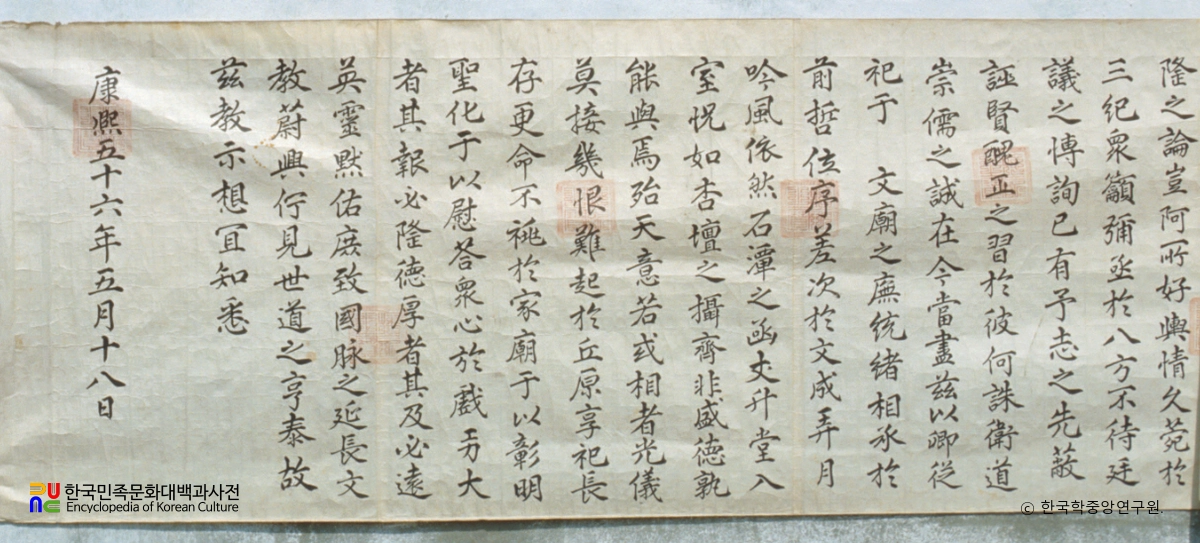 隆之論豈阿所好輿情久菀於
三紀衆籲彌亟於八方不待廷
議之博詢已有予志之先蔽
誣賢醜正之習於彼何誅衛道
崇儒之誠在今當盡茲以卿從
祀于 文廟之廡統緖相承於
前哲位序差次於文成弄月
吟風依然石潭之函丈升堂入
室怳如杏壇之攝齊非盛德孰
能與焉殆天意若或相者光儀
莫接幾恨難起於丘原享祀長
存更命不祧於家廟于以彰明
聖化于以慰答衆心於戲功大
者其報必隆德厚者其及必遠
英靈默佑庶致國脉之延長文
教蔚興佇見世道之亨泰故
茲教示想宜知悉
康熙五十六年五月十八日
한국민족문화대백과사전
Encyclopedia of Korean Culture
© 한국학중앙연구원.